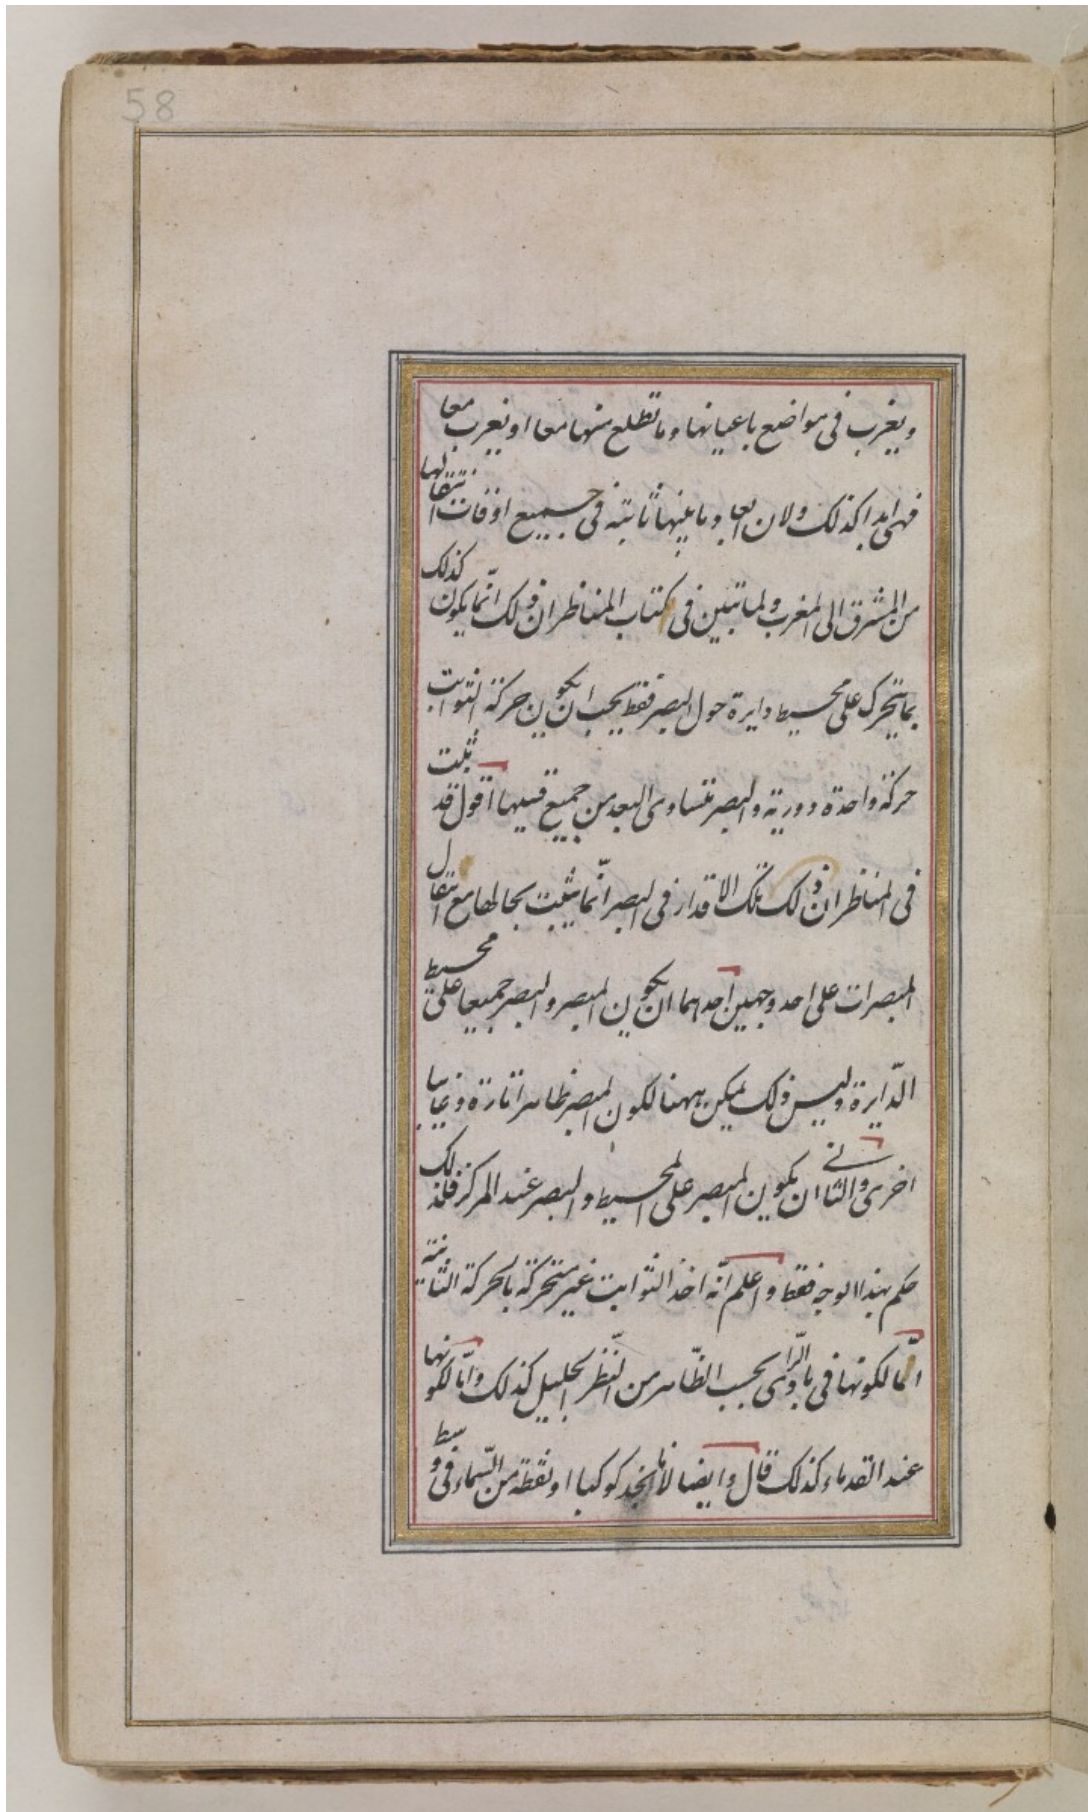 58
ويغرب فى مواضع باعيانها وما تطلع منها معا او يغرب معا
فهى ابدا كذلك ولان ابعاد ما بينها ثابتة فى جميع اوقات انتقالها
من المشرق الى المغرب ولما تبين فى كتاب المناظر ان ذلك انّما يكون كذلك
بما يتحرك على محيط دايرة حول البصر فقط يجب ان يكون حركة الثوابت
حركة واحدة دورية والبصر متساوى البعد من جميع قسيها اقول قد ثبت
فى المناظر ان ذلك تلك الاقدار فى البصر انّما يثبت بحالها مع انتقال
المبصرات على احد وجهين احدهما ان يكون المبصر والبصر جميعا على محيط
الدّايرة وليس ذلك يمكن ههنا لكون المبصر ظاهرا تارة وغايبا
اخرى والثانى ان يكون المبصر على المحيط والبصر عند المركز فلذلك
حكم بهذا الوجه فقط واعلم انّه اخذ الثوابت غير متحركة بالحركة الثانية
امّا لكونها فى بادى الرّاى بحسب الظّاهر من النّظر الجليل كذلك وامّا لكونها
عند القدماء كذلك قال وايضا لانا نجد كوكبا او نقطة من السّماء فى وسط